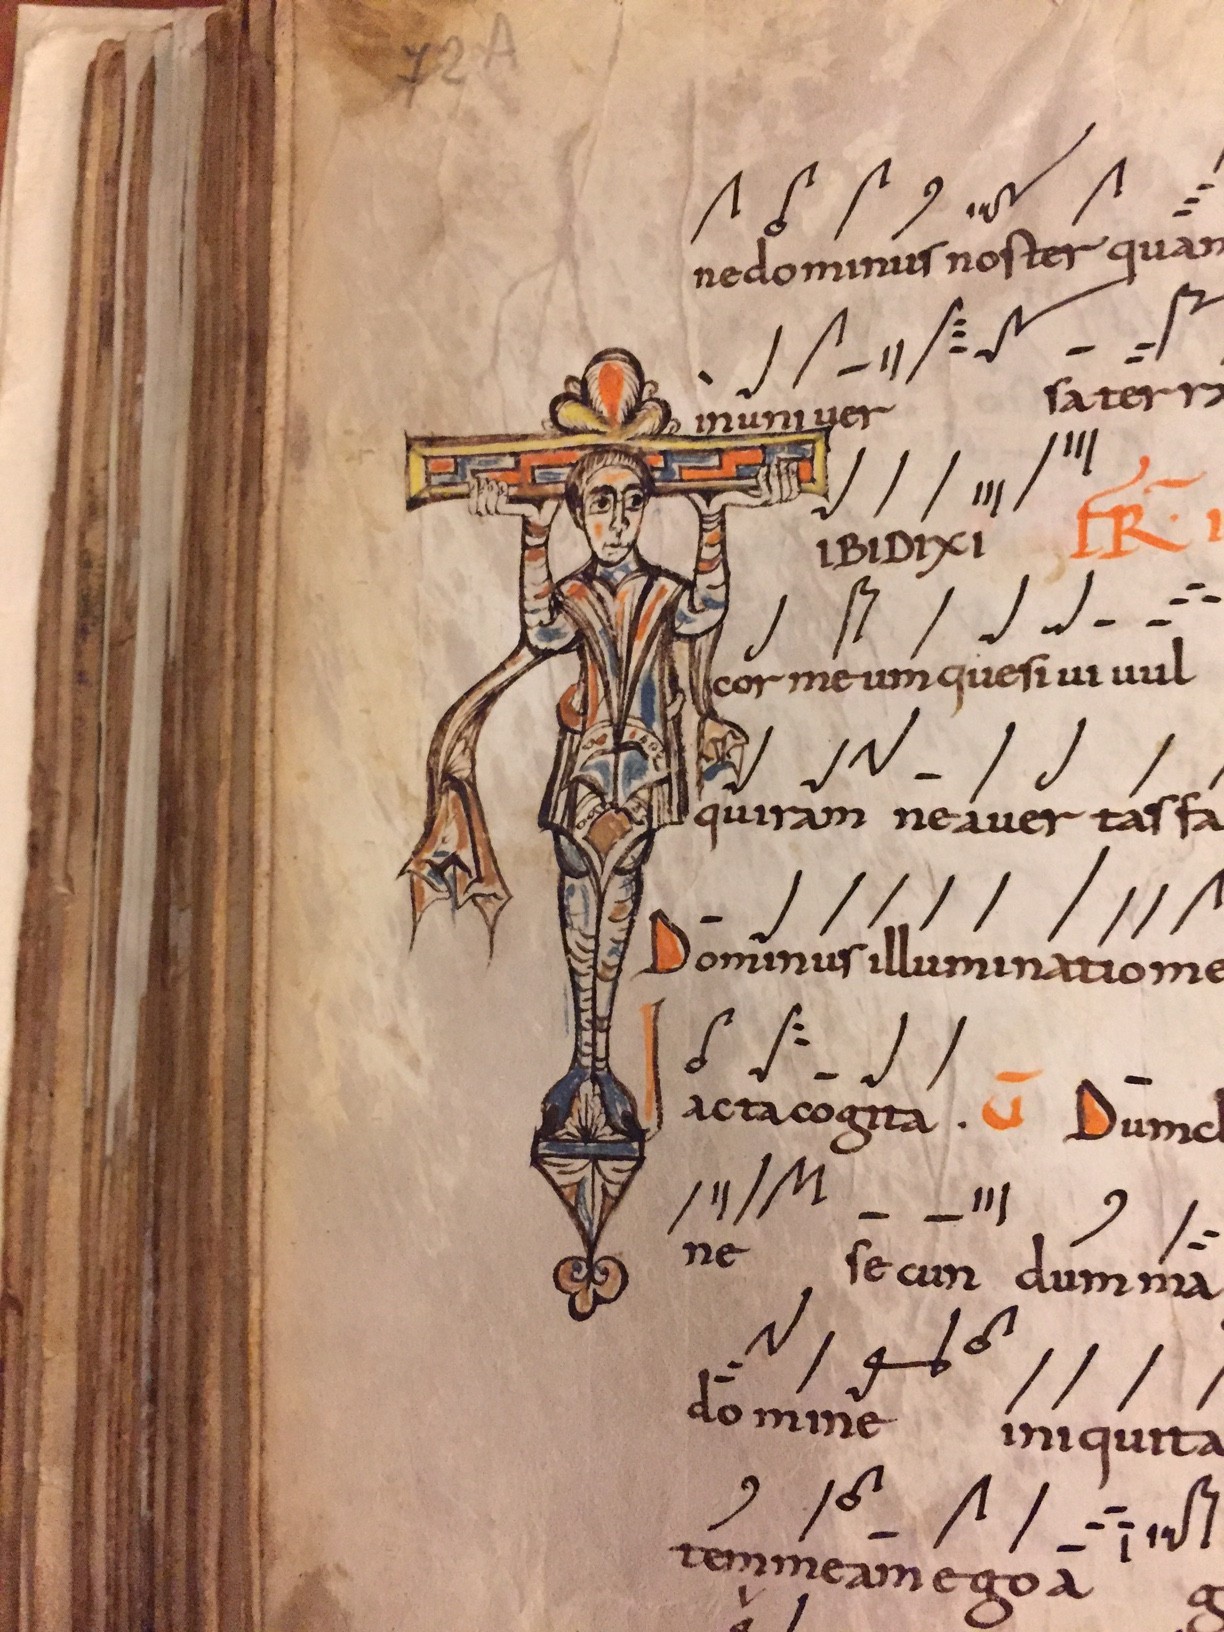 72A
ne dominus noster quam
in univer sa terra
T IBI DIXI
cor meum quesivi vul
quiram ne avertas fa
Dominus illuminatio me
Iacta cogita . V Dum cl
ne secundum ma
domine iniquita
tem meam ego a g